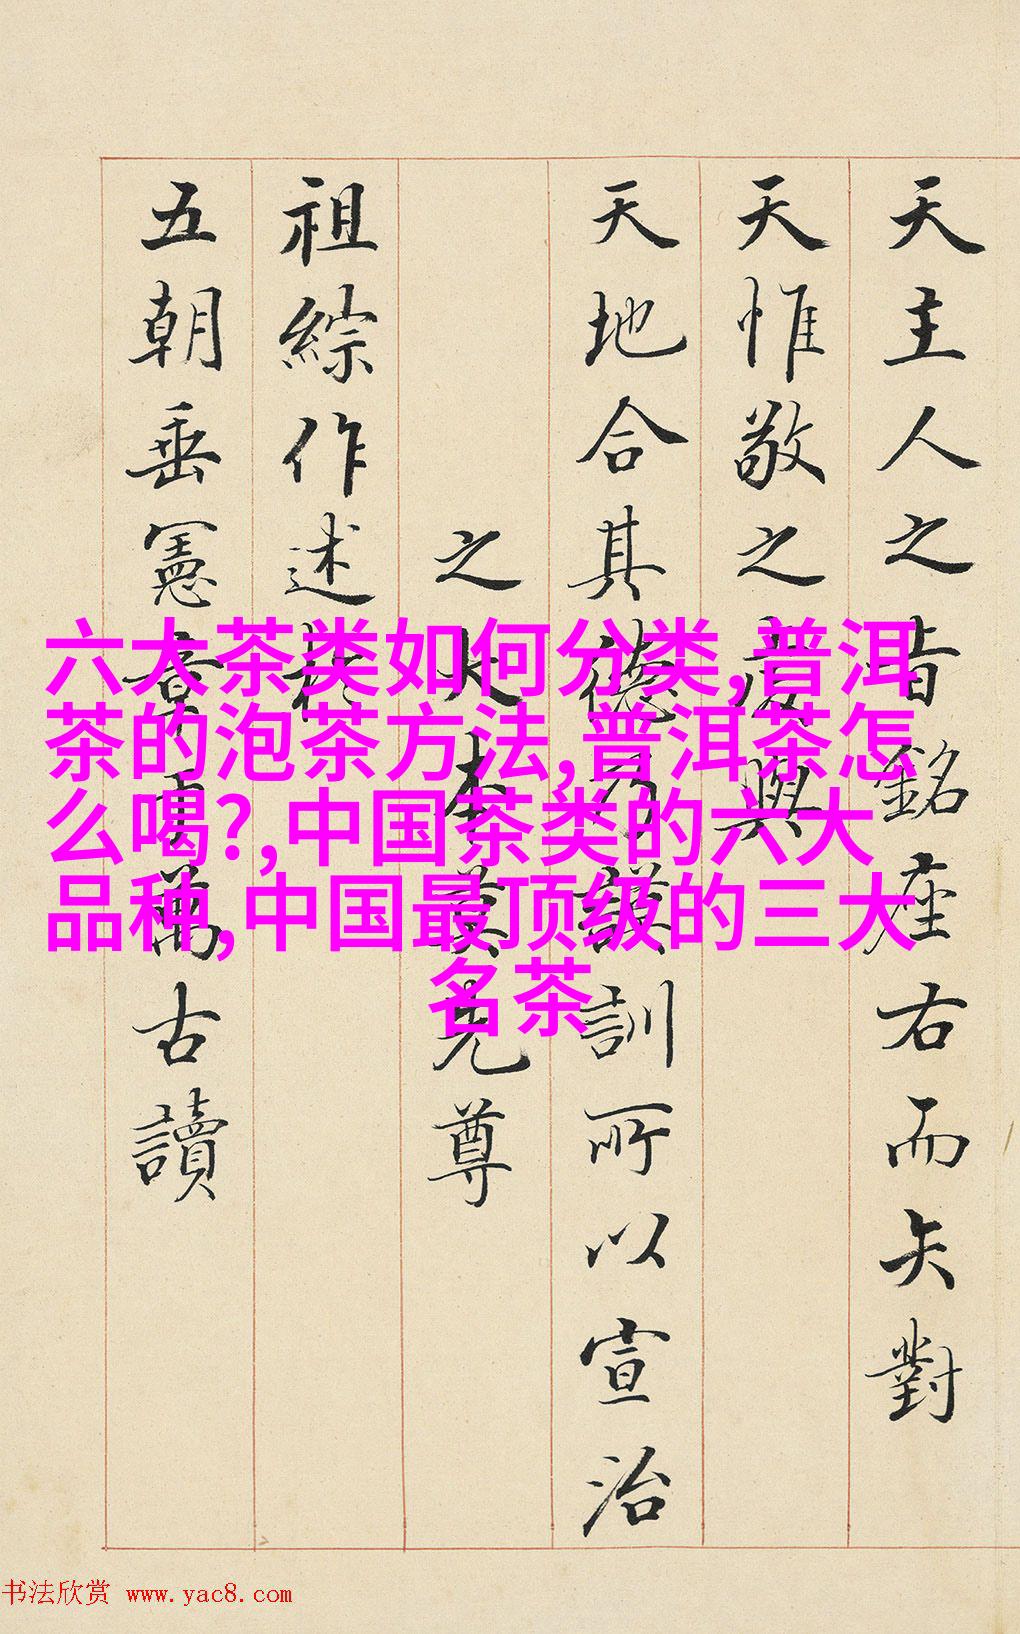 六大茶类如何分类,普洱
茶的泡茶方法,普洱茶怎
么喝?,中国茶类的六大
品种,中国最顶级的三大
名茶
天主人之旨銘座右而矢對
天惟敬之興
天地合其德乃謨訓所以宣治
之大本莫先尊
祖綜作述
五朝垂憲萬古讀
书法欣赏 www.yac8.com